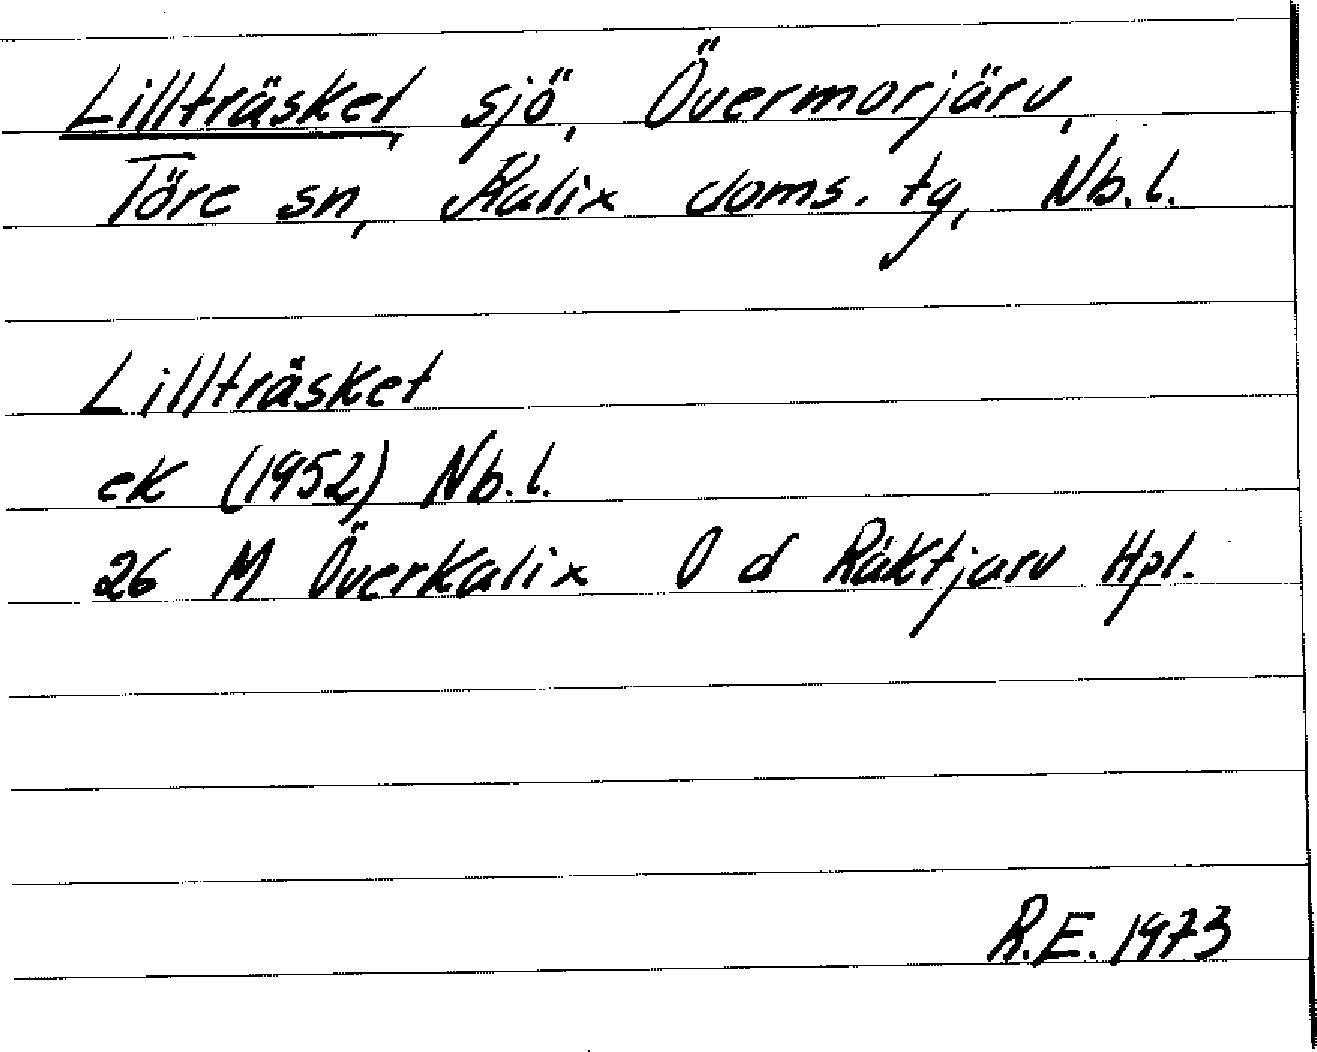 Lillträsket, sjö, Övermorjärv,
Töre sn, Kalix doms. tg, Nb.l.
Lillträsket
ek (1952) Nb.l.
26 M Överkalix O d Räktjärv Hpl.
R.E. 1973